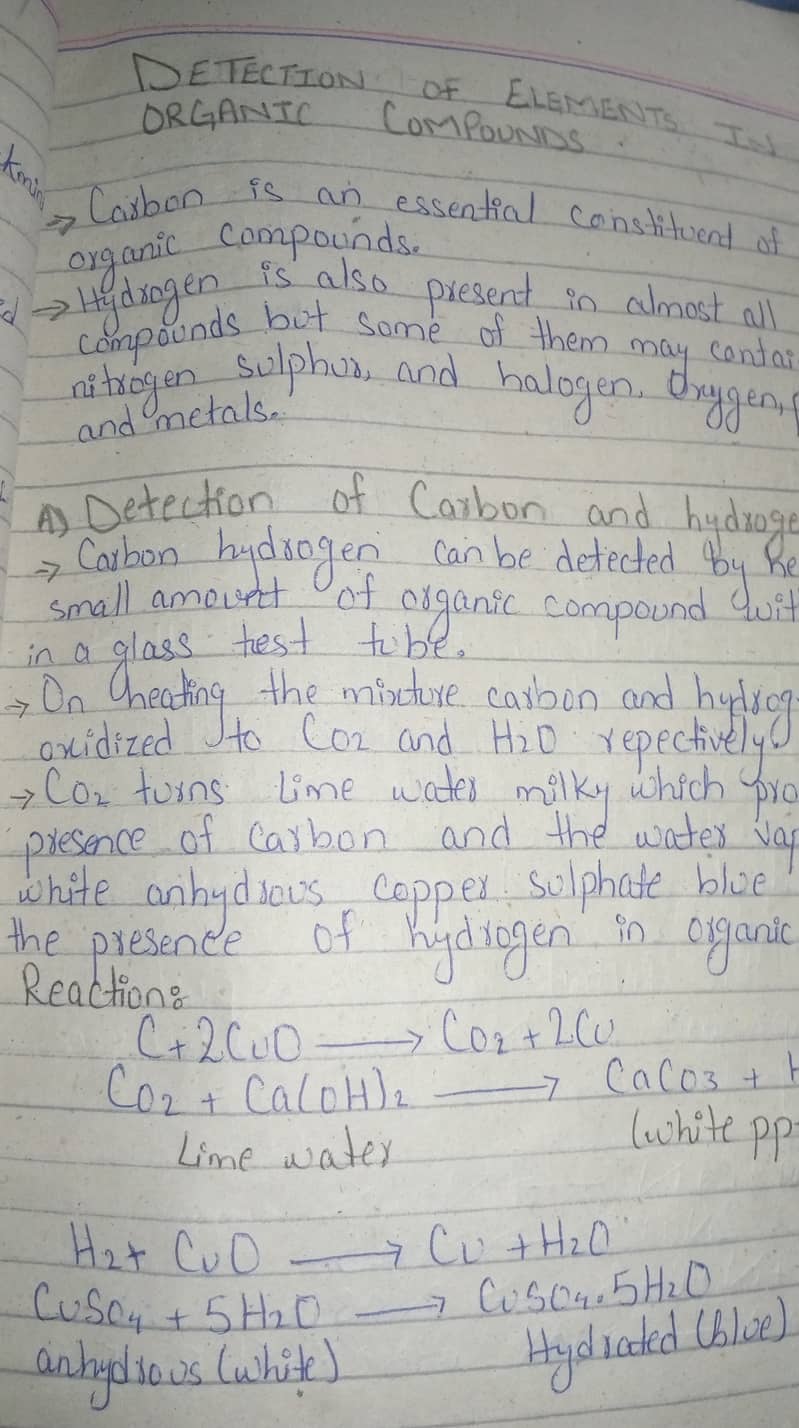 DETECTION OF ELEMENTS IN
ORGANIC COMPOUNDS.
⇒ Carbon is an essential constituent of
organic compounds.
→ Hydrogen is also present in almost all
compounds but some of them may contai
nitrogen sulphur, and halogen. Oxygen,
and metals.
A) Detection of Carbon and hydroge
⇒ Carbon hydrogen can be detected by He
small amount of organic compound wit
in a glass test tube.
→ On heating the mixture carbon and hydrog
oxidized to CO2 and H2O repectively
→ CO2 turns lime water milky which pro
presence of carbon and the water vap
white anhydrous copper sulphate blue
the presence of hydrogen in organic
Reaction:
C + 2CuO ⟶ CO2 + 2Cu
CO2 + Ca(OH)2 ⟶ CaCO3 + H
Lime water (white pp
H2 + CuO ⟶ Cu + H2O
CuSO4 + 5H2O ⟶ CuSO4.5H2O
anhydrous (white) Hydrated (blue)